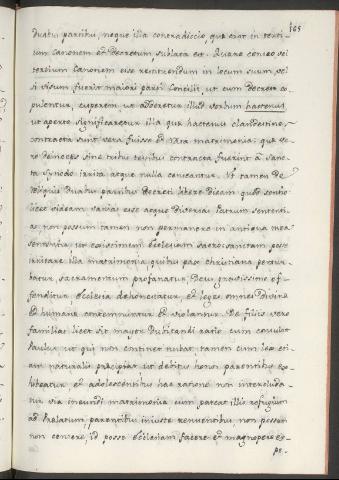 165
duabus partibus, neque illa contradictio, quæ erat in terti-
um Canonem et Decretum, sublata est. Quare censeo, vel
tertium Canonem esse restituendum in locum suum, vel
si visum fuerit maiori parti Concilii, ut cum decreto co-
pulentur, cuperem, ut adderetur illud verbum hactenus,
ut aperte significaretur illa quæ hactenus clandestino,
contracta sunt vera fuisse et rata matrimonia: quæ ve-
ro deinceps sine tribus testibus contracta fuerint a Sanc-
ta Synodo irrita atque nulla censeantur. Ut tamen de
reliquis duabus partibus decreti libere dicam quod sentio
licet videam varias esse atque diversas Patrum sententi-
as, non possum tamen non permanere in antiqua mea
sententia, ut existimem Ecclesiam sacrosanctam posse
irritare illa matrimonia, quibus pax christiana pertur-
batur, sacramentum profanatur, Deus gravissime of-
fenditur Ecclesia dehonestatur, et leges omnes divinæ
et humanæ contemnuntur et violantur. De filiis vero
familias licet sit mayor dubitandi ratio, cum consulat
Paulus, ut qui non continet nubat, tamen cum lex eti-
am naturalis præcipiat, ut debitus honor parentibus ex-
hibeatur, et adolescentibus hac ratione non intercluda-
tur via ineundi matrimonia, cum pateat illis refugium
ad Prælatum, parentibus iniuste renuentibus, non possum
non censere, id posse Ecclesiam facere et magnopere ex-
pe-